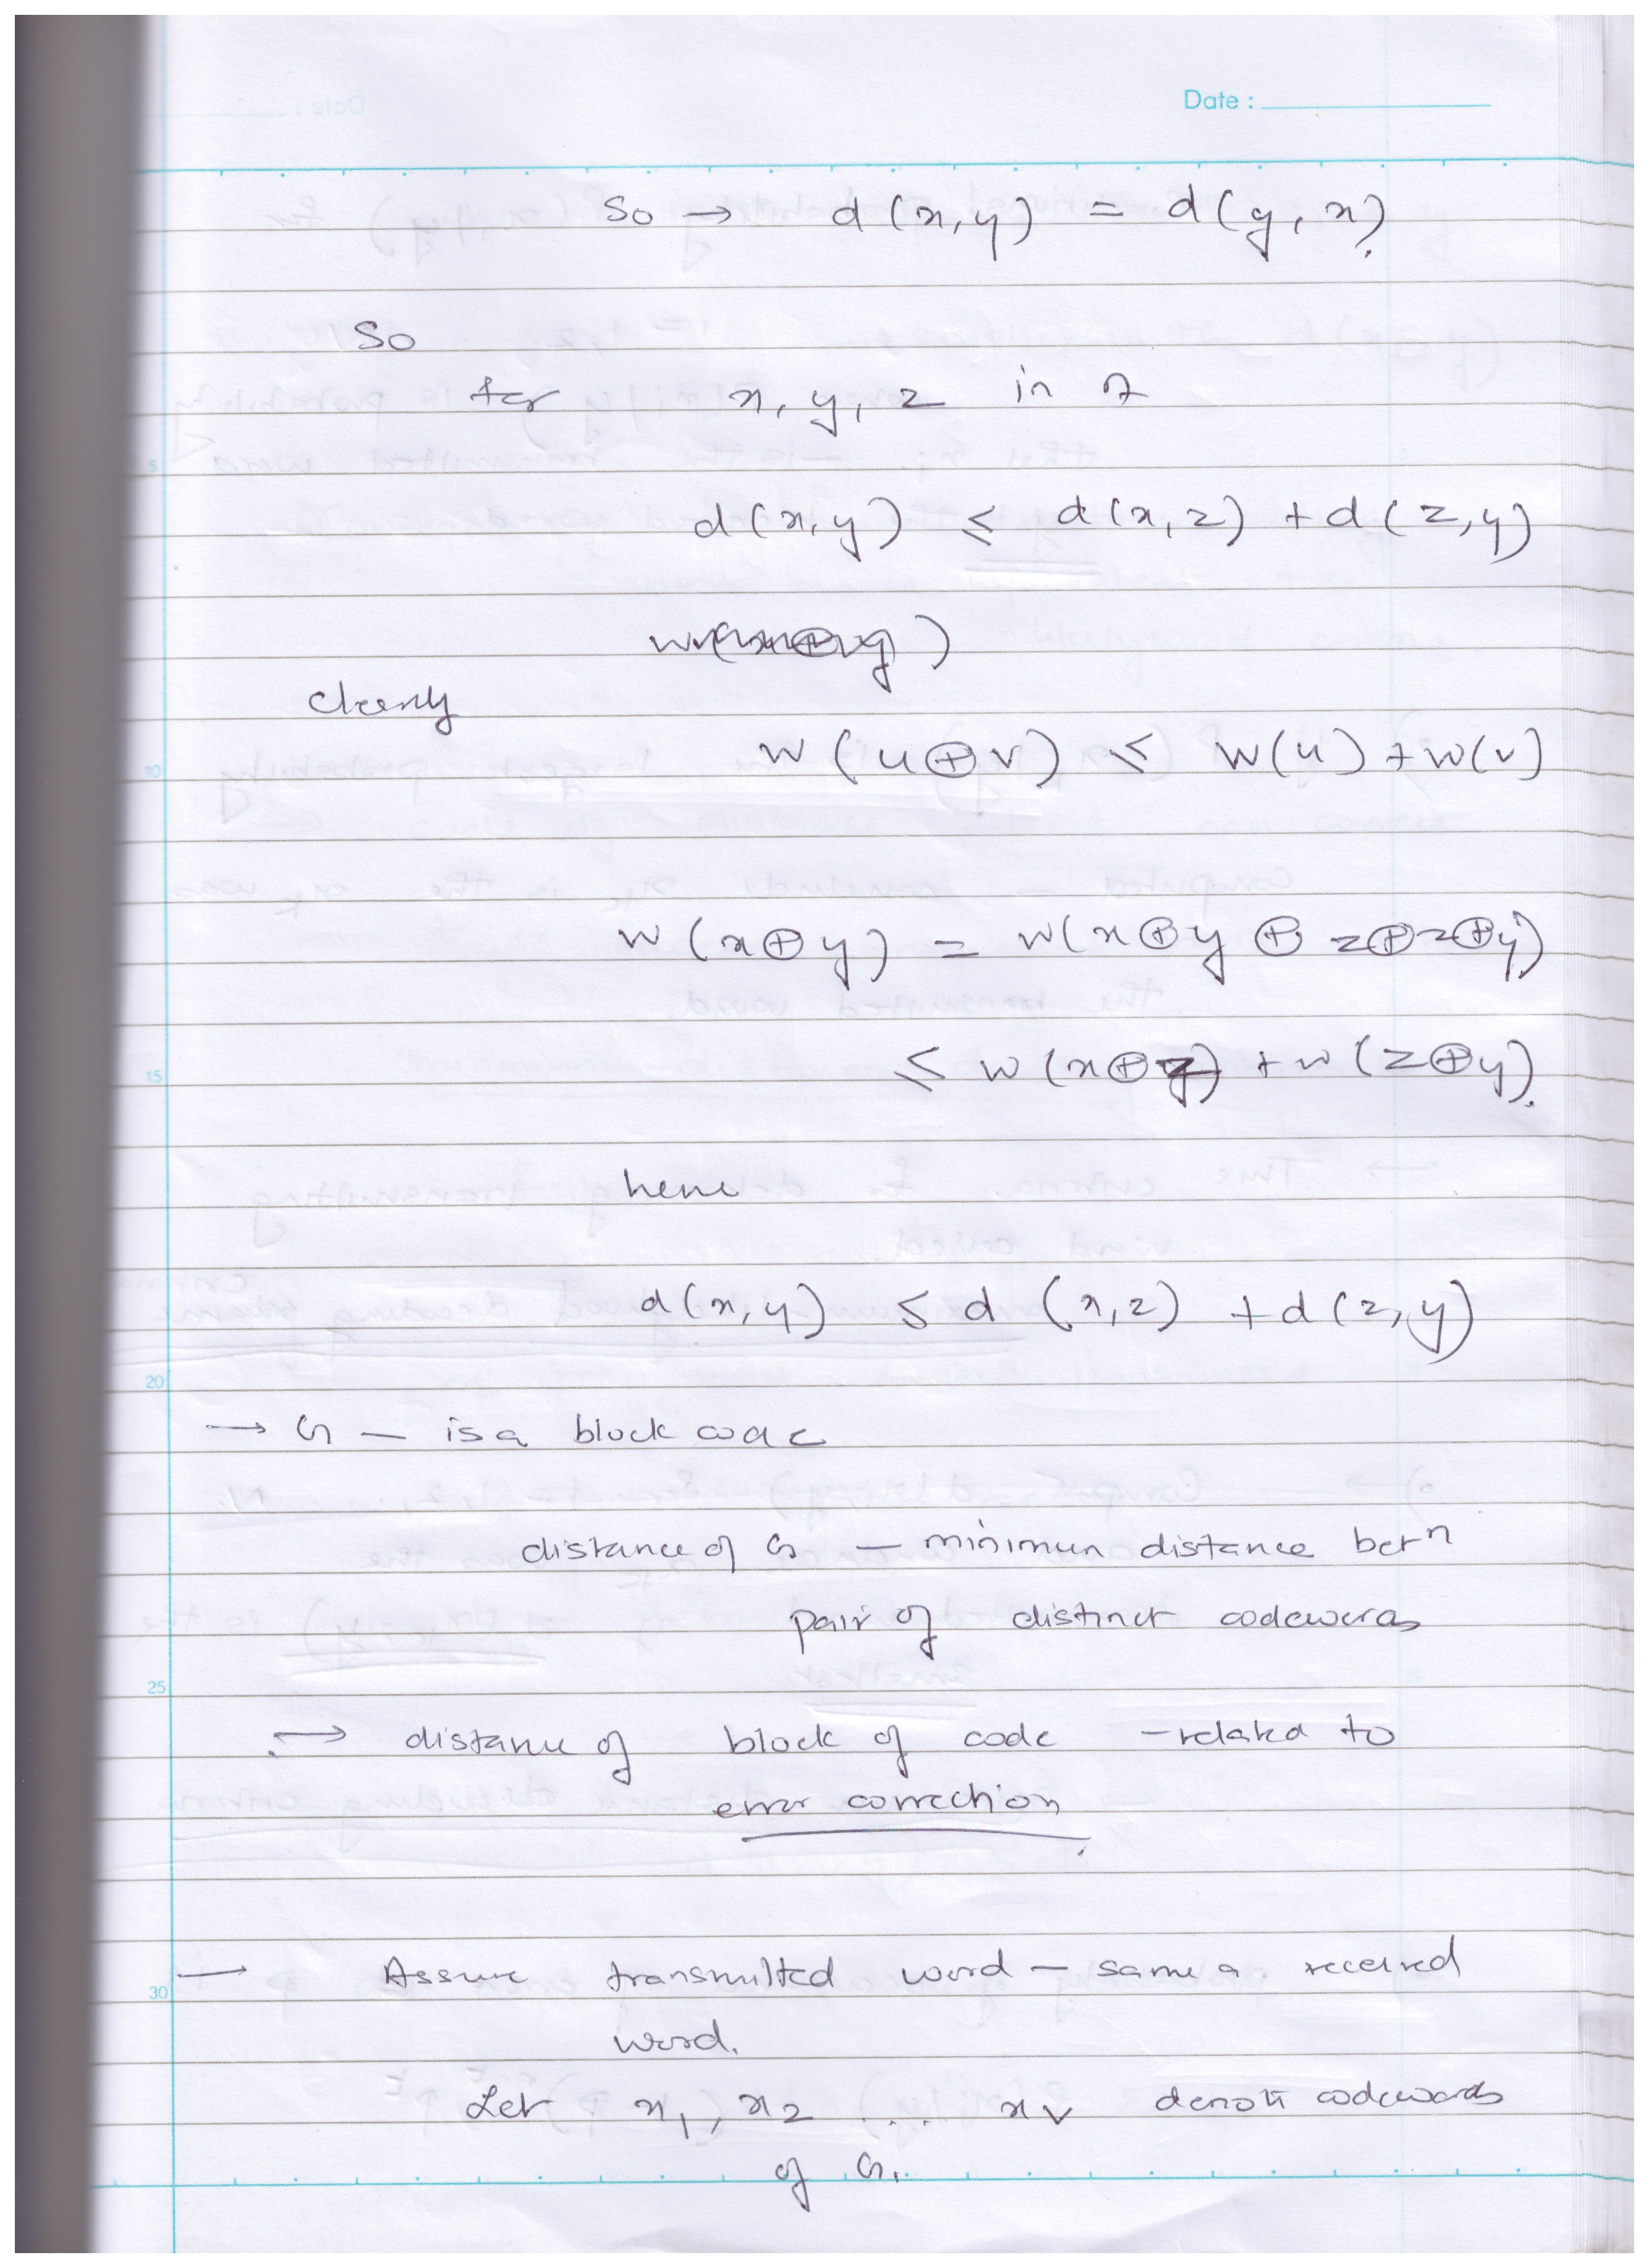 Date :
So → d (x, y) = d (y, x).
So
for x, y, z in A
d (x, y) ≤ d (x, z) + d ( z, y)
clearly
w ( u ⊕ v ) ≤ w (u) + w(v)
w ( x ⊕ y ) = w( x ⊕ y ⊕ z ⊕ z ⊕ y )
≤ w (x ⊕ z) + w ( z ⊕ y ).
hence
d (x, y) ≤ d (x, z) + d ( z, y)
→ G — is a block code
distance of G — minimum distance betn
pair of distinct codewords
→ distance of block of code - related to
error correction
— Assume transmitted word — same a received
word.
Let x1, x2 ... x denote codewords
of G.
5
10
15
20
25
30